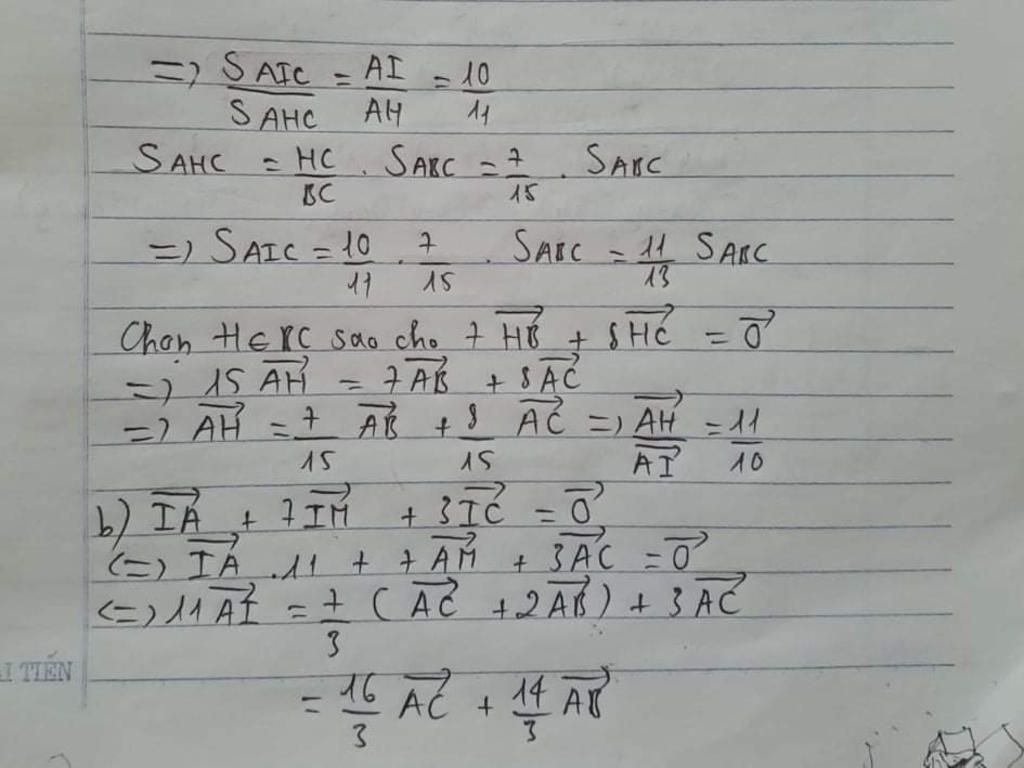 => S AIC / S AHC = AI / AH = 10 / 11
S AHC = HC / BC . S ABC = 7 / 15 . S ABC
=> S AIC = 10 / 11 . 7 / 15 . S ABC = 11 / 13 S ABC
Chọn H∈BC sao cho 7 \overrightarrow{HB} + 8 \overrightarrow{HC} = \overrightarrow{0}
=> 15 \overrightarrow{AH} = 7 \overrightarrow{AB} + 8 \overrightarrow{AC}
=> \overrightarrow{AH} = 7 / 15 \overrightarrow{AB} + 8 / 15 \overrightarrow{AC} => \overrightarrow{AH} / \overrightarrow{AI} = 11 / 10
b) \overrightarrow{IA} + 7 \overrightarrow{IM} + 3 \overrightarrow{IC} = \overrightarrow{0}
<=> \overrightarrow{IA} . 11 + 7 \overrightarrow{AM} + 3 \overrightarrow{AC} = \overrightarrow{0}
<=> 11 \overrightarrow{AI} = 7 / 3 ( \overrightarrow{AC} + 2 \overrightarrow{AB} ) + 3 \overrightarrow{AC}
TIẾN
= 16 / 3 \overrightarrow{AC} + 14 / 3 \overrightarrow{AB}